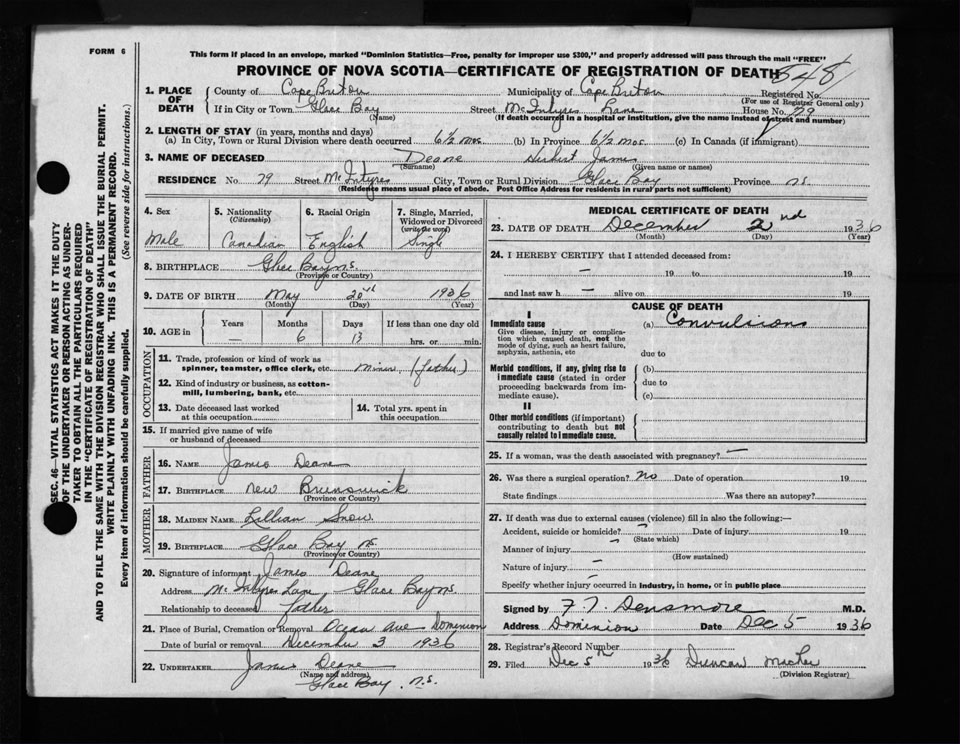 FORM 6
This form if placed in an envelope, marked "Dominion Statistics—Free, penalty for improper use $300," and properly addressed will pass through the mail "FREE"
PROVINCE OF NOVA SCOTIA—CERTIFICATE OF REGISTRATION OF DEATH
548
1. PLACE OF DEATH
County of Cape Breton Municipality of Cape Breton Registered No.
(For use of Registrar General only)
If in City or Town Glace Bay Street McIntyres Lane House No. 79
(Name) (If death occurred in a hospital or institution, give the name instead of street and number)
2. LENGTH OF STAY (in years, months and days)
(a) In City, Town or Rural Division where death occurred 6½ mos. (b) In Province 6½ mos. (c) In Canada (if immigrant)
3. NAME OF DECEASED Deane Herbert James
(Surname) (Given name or names)
RESIDENCE No. 79 Street McIntyres City, Town or Rural Division Glace Bay Province n.s.
(Residence means usual place of abode. Post Office Address for residents in rural parts not sufficient)
SEC. 46—VITAL STATISTICS ACT MAKES IT THE DUTY
OF THE UNDERTAKER OR PERSON ACTING AS UNDER-
TAKER TO OBTAIN ALL THE PARTICULARS REQUIRED
IN THE "CERTIFICATE OF REGISTRATION OF DEATH"
AND TO FILE THE SAME WITH THE DIVISION REGISTRAR WHO SHALL ISSUE THE BURIAL PERMIT.
WRITE PLAINLY WITH UNFADING INK. THIS IS A PERMANENT RECORD.
Every item of information should be carefully supplied. (See reverse side for instructions.)
4. Sex
Male
5. Nationality
(Citizenship)
Canadian
6. Racial Origin
English
7. Single, Married,
Widowed or Divorced
(write the word)
Single
8. BIRTHPLACE Glace Bay n.s.
(Province or Country)
9. DATE OF BIRTH May 20th 1936
(Month) (Day) (Year)
10. AGE in Years Months Days If less than one day old
— 6 13 hrs. or min.
OCCUPATION
11. Trade, profession or kind of work as
spinner, teamster, office clerk, etc. Miner, (father)
12. Kind of industry or business, as cotton-
mill, lumbering, bank, etc.
13. Date deceased last worked
at this occupation
14. Total yrs. spent in
this occupation
15. If married give name of wife
or husband of deceased
FATHER
16. NAME James Deane
17. BIRTHPLACE New Brunswick
(Province or Country)
MOTHER
18. MAIDEN NAME Lillian Snow
19. BIRTHPLACE Glace Bay n.s.
(Province or Country)
20. Signature of informant James Deane
Address McIntyres Lane, Glace Bay n.s.
Relationship to deceased father
21. Place of Burial, Cremation or Removal Ocean Ave Dominion
Date of burial or removal December 3 1936
22. UNDERTAKER James Deane
(Name and address)
Glace Bay, n.s.
MEDICAL CERTIFICATE OF DEATH
23. DATE OF DEATH December 2nd 1936
(Month) (Day) (Year)
24. I HEREBY CERTIFY that I attended deceased from:
— 19 to 19
and last saw h — alive on 19
CAUSE OF DEATH
I
Immediate cause (a) Convulsions
Give disease, injury or complica-
tion which caused death, not the
mode of dying, such as heart failure,
asphyxia, asthenia, etc
due to
Morbid conditions, if any, giving rise to
immediate cause (stated in order
proceeding backwards from im-
mediate cause).
(b)
due to
(c)
II
Other morbid conditions (if important)
contributing to death but not
causally related to immediate cause.
25. If a woman, was the death associated with pregnancy? —
26. Was there a surgical operation? No Date of operation 19
State findings Was there an autopsy?
27. If death was due to external causes (violence) fill in also the following:—
Accident, suicide or homicide? — Date of injury 19
(State which)
Manner of injury —
(How sustained)
Nature of injury —
Specify whether injury occurred in industry, in home, or in public place
Signed by F. T. Densmore M.D.
Address Dominion Date Dec 5 1936
28. Registrar's Record Number
29. Filed Dec 5th 1936 Duncan
(Division Registrar)